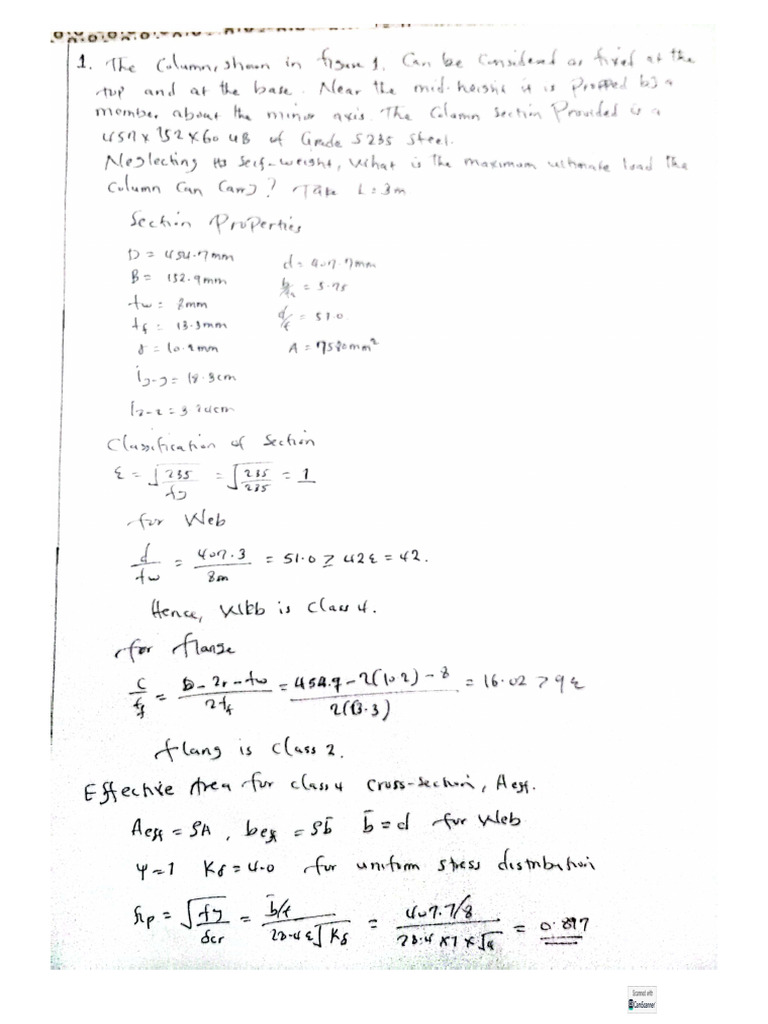 1. The Column, shown in figure 1, Can be Considered as fixed at the
top and at the base. Near the mid-height it is Propped by a
member about the minor axis. The Column Section Provided is a
457 x 152 x 60 UB of Grade S235 Steel.
Neglecting its Self-weight, What is the maximum ultimate load the
Column Can Carry? Take L = 3m
Section Properties
D = 454.7mm
B = 152.9mm
tw = 8mm
tf = 13.3mm
r = 10.2mm
iy-y = 18.3cm
d = 407.7mm
= 5.75
d/t = 51.0
A = 7580mm²
Classification of Section
ε = √235/fy = √235/235 = 1
for Web
d/tw = 407.3/8m = 51.0 ≥ 42ε = 42.
Hence, Web is Class 4.
for flange
C/tf = D - 2r - tw/2tf = 454.7 - 2(10.2) - 8/2(13.3) = 16.02 > 9ε
flang is Class 2.
Effective Area for class 4 cross-section, Aeff.
Aeff = ρA, beff = ρb̄ b̄ = d for Web
Ψ = 1 Kσ = 4.0 for uniform stress distribution
λp = √fy/σcr = b̄/t/28.4ε√Kσ = 407.7/8/28.4 x 1 x √4 = 0.897
Scanned with
CamScanner